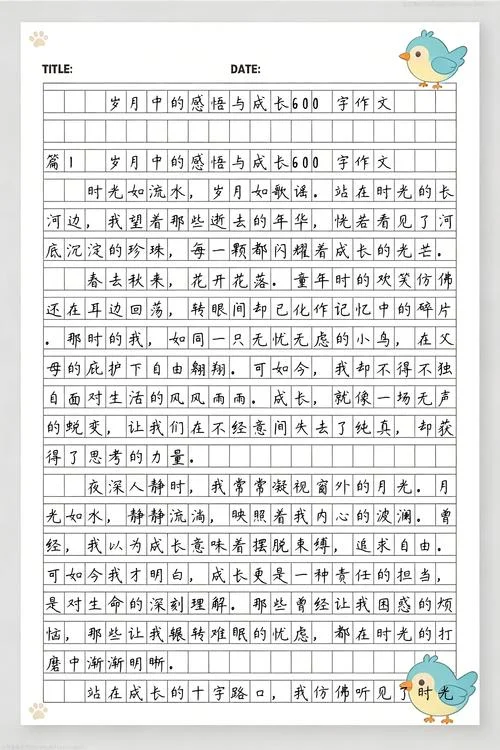 TITLE: DATE:
岁月中的感悟与成长600 字作文
篇1 岁月中的感悟与成长600 字作文
时光如流水，岁月如歌谣。站在时光的长
河边，我望着那些逝去的年华，恍若看见了河
底沉淀的珍珠，每一颗都闪耀着成长的光芒。
春去秋来，花开花落。童年时的欢笑仿佛
还在耳边回荡，转眼间却已化作记忆中的碎片
。那时的我，如同一只无忧无虑的小鸟，在父
母的庇护下自由翱翔。可如今，我却不得不独
自面对生活的风风雨雨。成长，就像一场无声
的蜕变，让我们在不经意间失去了纯真，却获
得了思考的力量。
夜深人静时，我常常凝视窗外的月光。月
光如水，静静流淌，映照着我内心的波澜。曾
经，我以为成长意味着摆脱束缚，追求自由。
可如今我才明白，成长更是一种责任的担当，
是对生命的深刻理解。那些曾经让我困惑的烦
恼，那些让我辗转难眠的忧虑，都在时光的打
磨中渐渐明晰。
站在成长的十字路口，我仿佛听见了时光